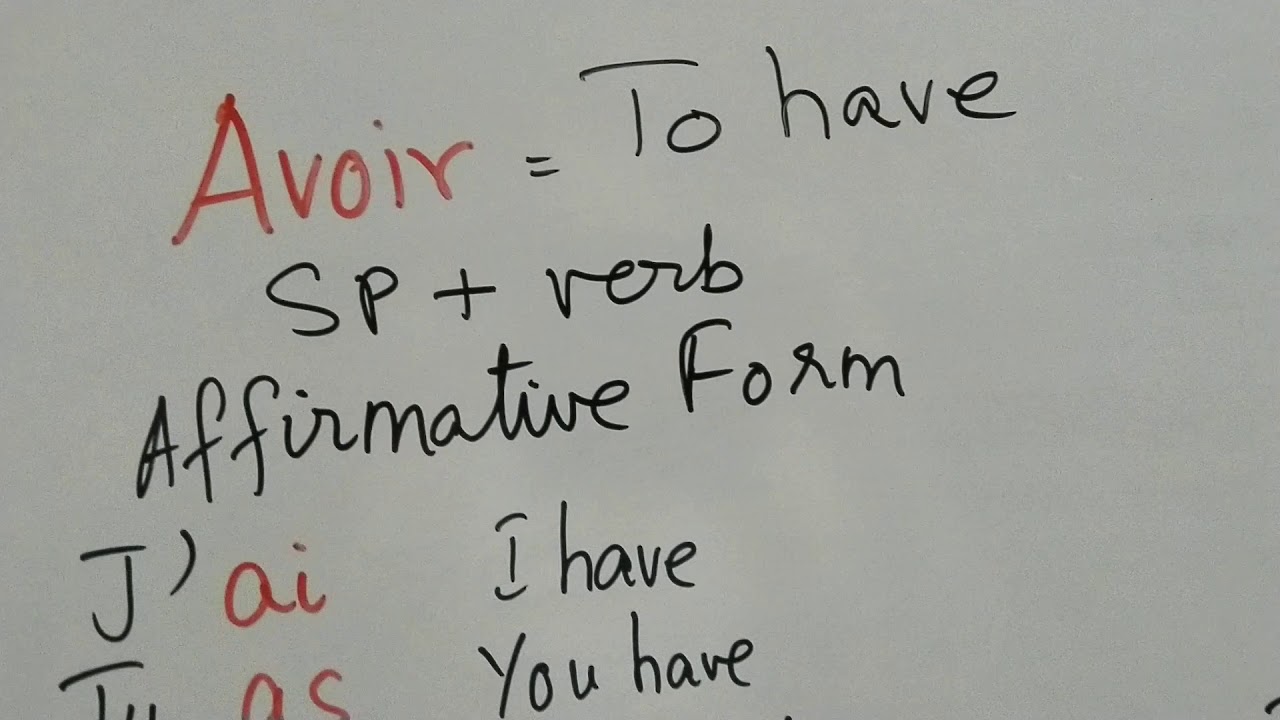 Avoir = To have
SP + verb
Affirmative Form
J'ai I have
Tu as You have